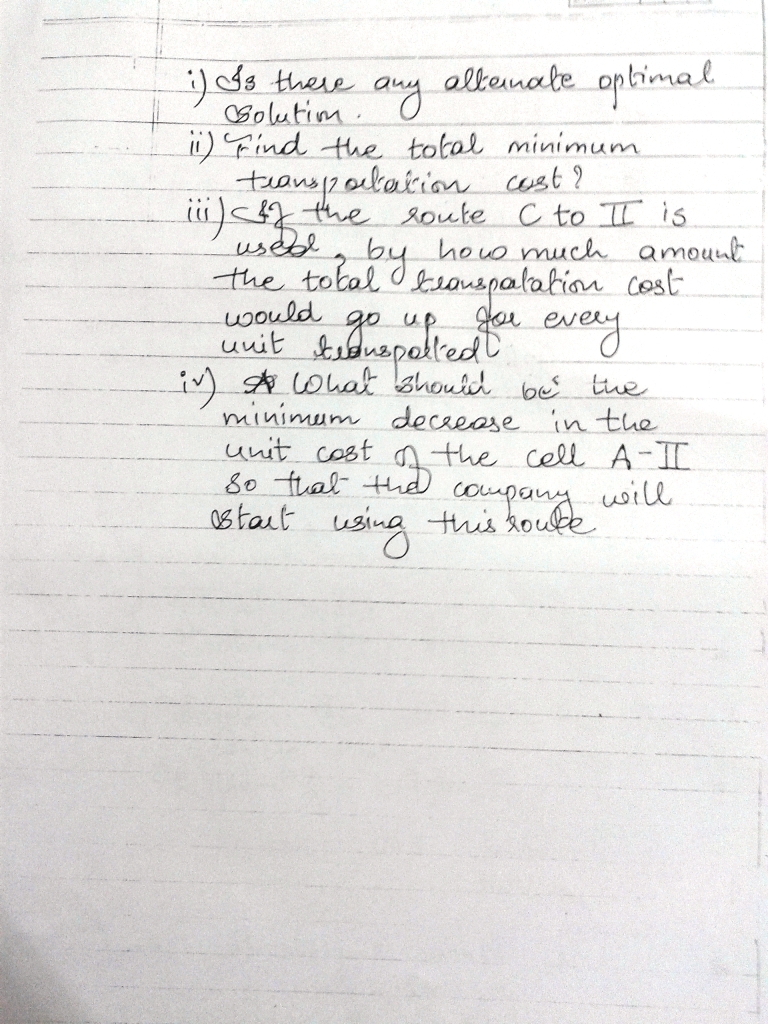 i) Is there any alternate optimal
solution.
ii) Find the total minimum
transportation cost?
iii) If the route C to II is
used, by how much amount
the total transpotation cost
would go up for every
unit transported
iv) What should be the
minimum decrease in the
unit cost of the cell A-II
so that the company will
start using this route